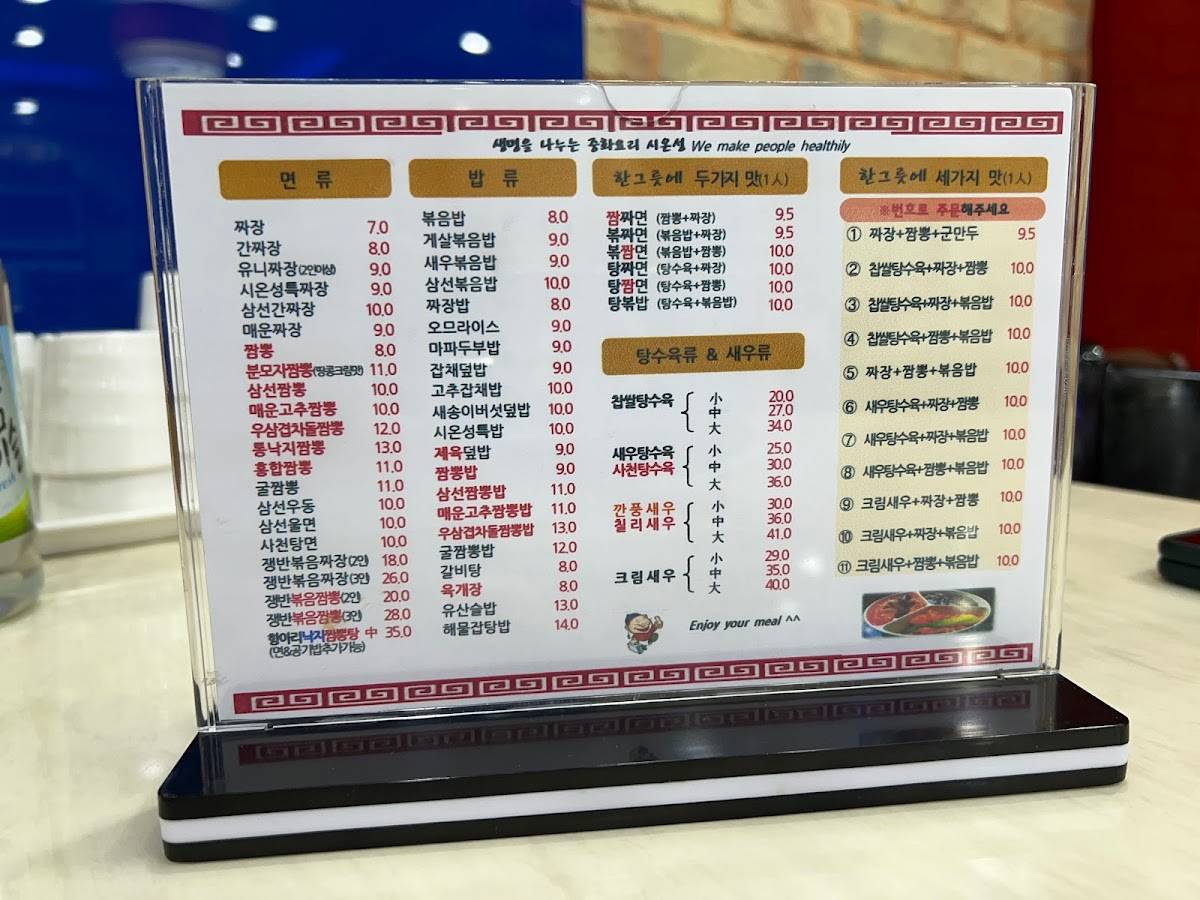 생명을 나누는 중화요리 시온성 We make people healthily
면 류
짜장 7.0
간짜장 8.0
유니짜장(2인이상) 9.0
시온성특짜장 9.0
삼선간짜장 10.0
매운짜장 9.0
짬뽕 8.0
분모자짬뽕(땅콩크림맛) 11.0
삼선짬뽕 10.0
매운고추짬뽕 10.0
우삼겹차돌짬뽕 12.0
통낙지짬뽕 13.0
홍합짬뽕 11.0
굴짬뽕 11.0
삼선우동 10.0
삼선울면 10.0
사천탕면 10.0
쟁반볶음짜장(2인) 18.0
쟁반볶음짜장(3인) 26.0
쟁반볶음짬뽕(2인) 20.0
쟁반볶음짬뽕(3인) 28.0
항아리낙지짬뽕탕 中 35.0
(면&공기밥추가가능)
밥 류
볶음밥 8.0
게살볶음밥 9.0
새우볶음밥 9.0
삼선볶음밥 10.0
짜장밥 8.0
오므라이스 9.0
마파두부밥 9.0
잡채덮밥 9.0
고추잡채밥 10.0
새송이버섯덮밥 10.0
시온성특밥 10.0
제육덮밥 9.0
짬뽕밥 9.0
삼선짬뽕밥 11.0
매운고추짬뽕밥 11.0
우삼겹차돌짬뽕밥 13.0
굴짬뽕밥 12.0
갈비탕 8.0
육개장 8.0
유산슬밥 13.0
해물잡탕밥 14.0
한그릇에 두가지 맛(1人)
짬짜면 (짬뽕+짜장) 9.5
볶짜면 (볶음밥+짜장) 9.5
볶짬면 (볶음밥+짬뽕) 10.0
탕짜면 (탕수육+짜장) 10.0
탕짬면 (탕수육+짬뽕) 10.0
탕볶밥 (탕수육+볶음밥) 10.0
탕수육류 & 새우류
찹쌀탕수육 小 20.0
中 27.0
大 34.0
새우탕수육 小 25.0
사천탕수육 中 30.0
大 36.0
깐풍새우 小 30.0
칠리새우 中 36.0
大 41.0
小 29.0
크림새우 中 35.0
大 40.0
Enjoy your meal ^^
한그릇에 세가지 맛(1人)
※번호로 주문해주세요
① 짜장+짬뽕+군만두 9.5
② 찹쌀탕수육+짜장+짬뽕 10.0
③ 찹쌀탕수육+짜장+볶음밥 10.0
④ 찹쌀탕수육+짬뽕+볶음밥 10.0
⑤ 짜장+짬뽕+볶음밥 10.0
⑥ 새우탕수육+짜장+짬뽕 10.0
⑦ 새우탕수육+짜장+볶음밥 10.0
⑧ 새우탕수육+짬뽕+볶음밥 10.0
⑨ 크림새우+짜장+짬뽕 10.0
⑩ 크림새우+짜장+볶음밥 10.0
⑪ 크림새우+짬뽕+볶음밥 10.0